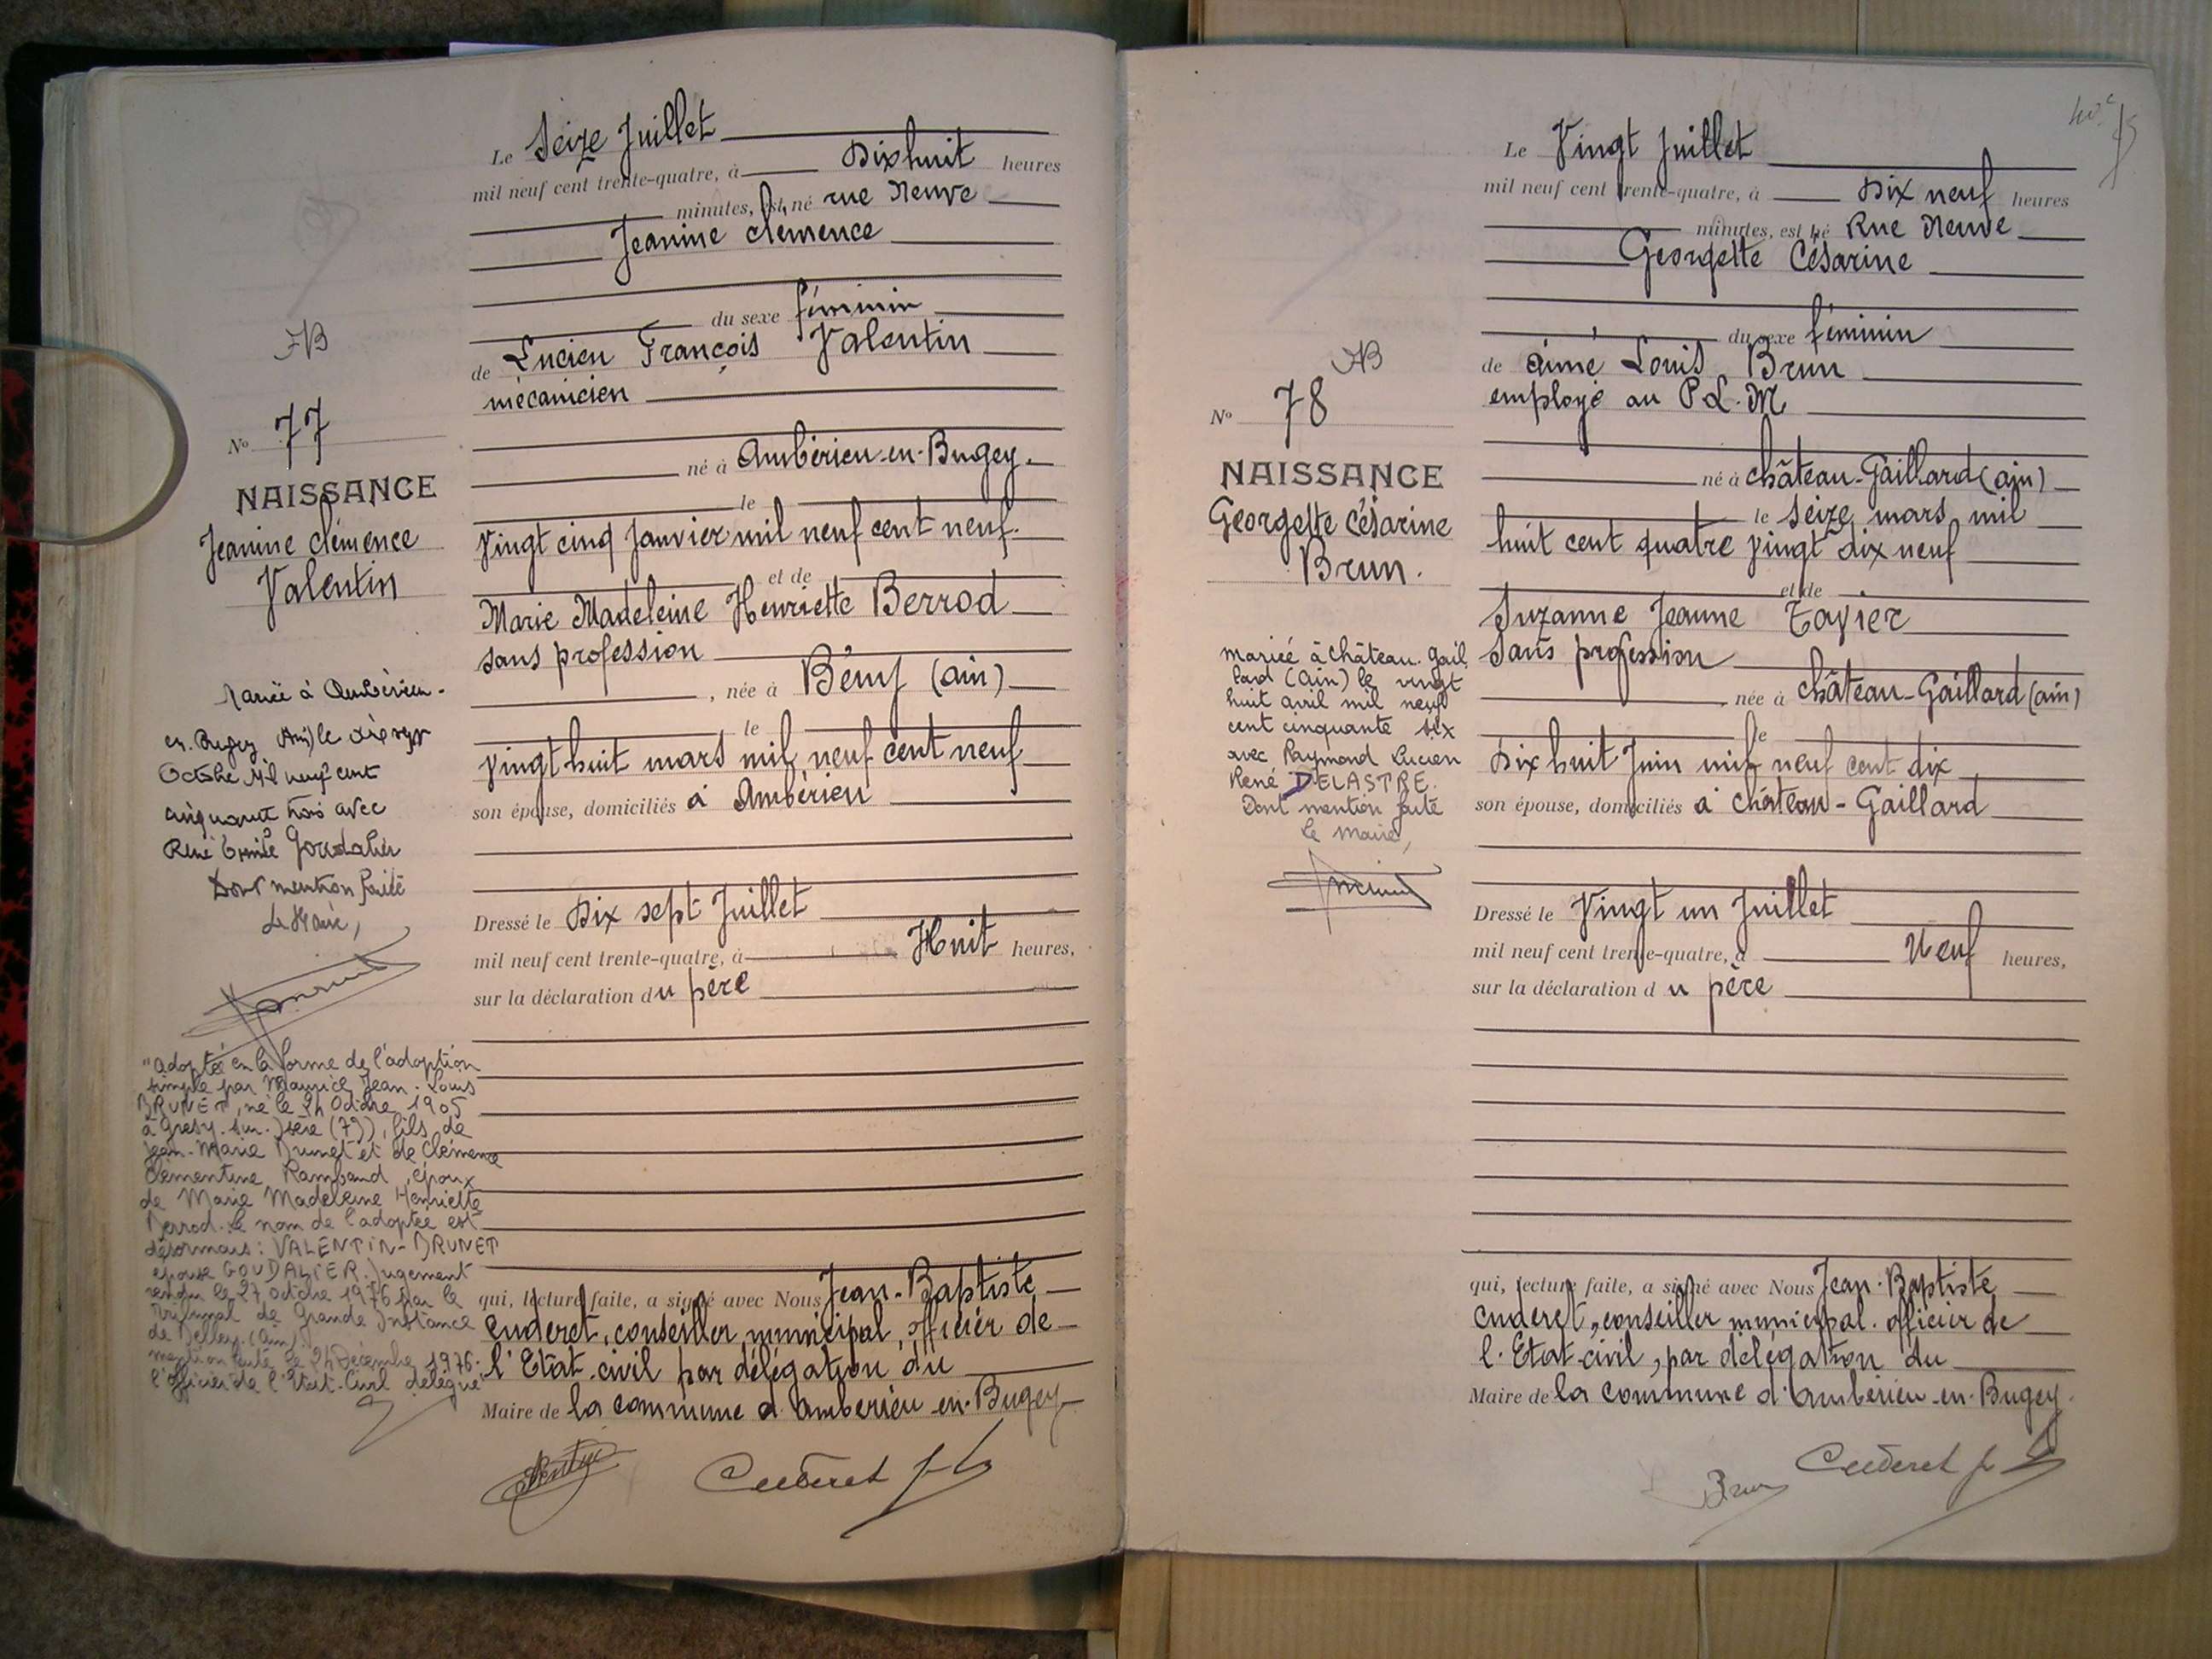 JB
N° 77
NAISSANCE
Jeanine Clémence
Valentin
Mariée à Ambérieu-
en-Bugey (Ain) le
Octobre mil neuf cent
cinquante trois avec
René Goudalier
Dont mention faite
Le Maire,
"Adoptée en la forme de l'adoption
simple par Maurice Jean-Louis
BRUNET, né le 24 Octobre 1905
à Grésy-sur-Isère (73), fils de
Jean-Marie Brunet et de Clémence
Clémentine Rambaud, époux
de Marie Madeleine Henriette
Berrod. Le nom de l'adoptée est
désormais : VALENTIN-BRUNET
épouse GOUDALIER. Jugement
rendu le 27 octobre 1976 par le
Tribunal de Grande Instance
de Belley (Ain).
mention faite le 24 Décembre 1976.
l'officier de l'Etat-Civil délégué"
Le Seize Juillet
mil neuf cent trente-quatre, à Dix huit heures
minutes, est né rue Neuve
Jeanine Clémence
du sexe féminin
de Lucien François Valentin
mécanicien
né à Ambérieu-en-Bugey.
le
Vingt cinq Janvier mil neuf cent neuf.
et de
Marie Madeleine Henriette Berrod
sans profession
, née à Bény (Ain)
le
Vingt huit mars mil neuf cent neuf
son épouse, domiciliés à Ambérieu
Dressé le Dix sept Juillet
mil neuf cent trente-quatre, à Huit heures,
sur la déclaration du père
qui, lecture faite, a signé avec Nous Jean-Baptiste
Cuderet, conseiller municipal, officier de
l'Etat-civil par délégation du
Maire de la commune d'Ambérieu-en-Bugey
Cuderet
JB
N° 78
NAISSANCE
Georgette Césarine
Brun.
mariée à Château-Gail
lard (Ain) le vingt
huit avril mil neuf
cent cinquante six
avec Raymond Lucien
René DELASTRE.
Dont mention faite
Le Maire,
Le Vingt Juillet
mil neuf cent trente-quatre, à Dix neuf heures
minutes, est né Rue Neuve
Georgette Césarine
du sexe féminin
de Aimé Louis Brun
employé au P.L.M
né à Château-Gaillard (Ain)
le Seize mars mil
huit cent quatre vingt dix neuf
et de
Suzanne Jeanne Tavier
Sans profession
née à Château-Gaillard (Ain)
le
Dix huit Juin mil neuf cent dix
son épouse, domiciliés à Château-Gaillard
Dressé le Vingt un Juillet
mil neuf cent trente-quatre, à Neuf heures,
sur la déclaration du père
qui, lecture faite, a signé avec Nous Jean-Baptiste
Cuderet, conseiller municipal, officier de
l'Etat-civil, par délégation du
Maire de la commune d'Ambérieu-en-Bugey.
Brun Cuderet